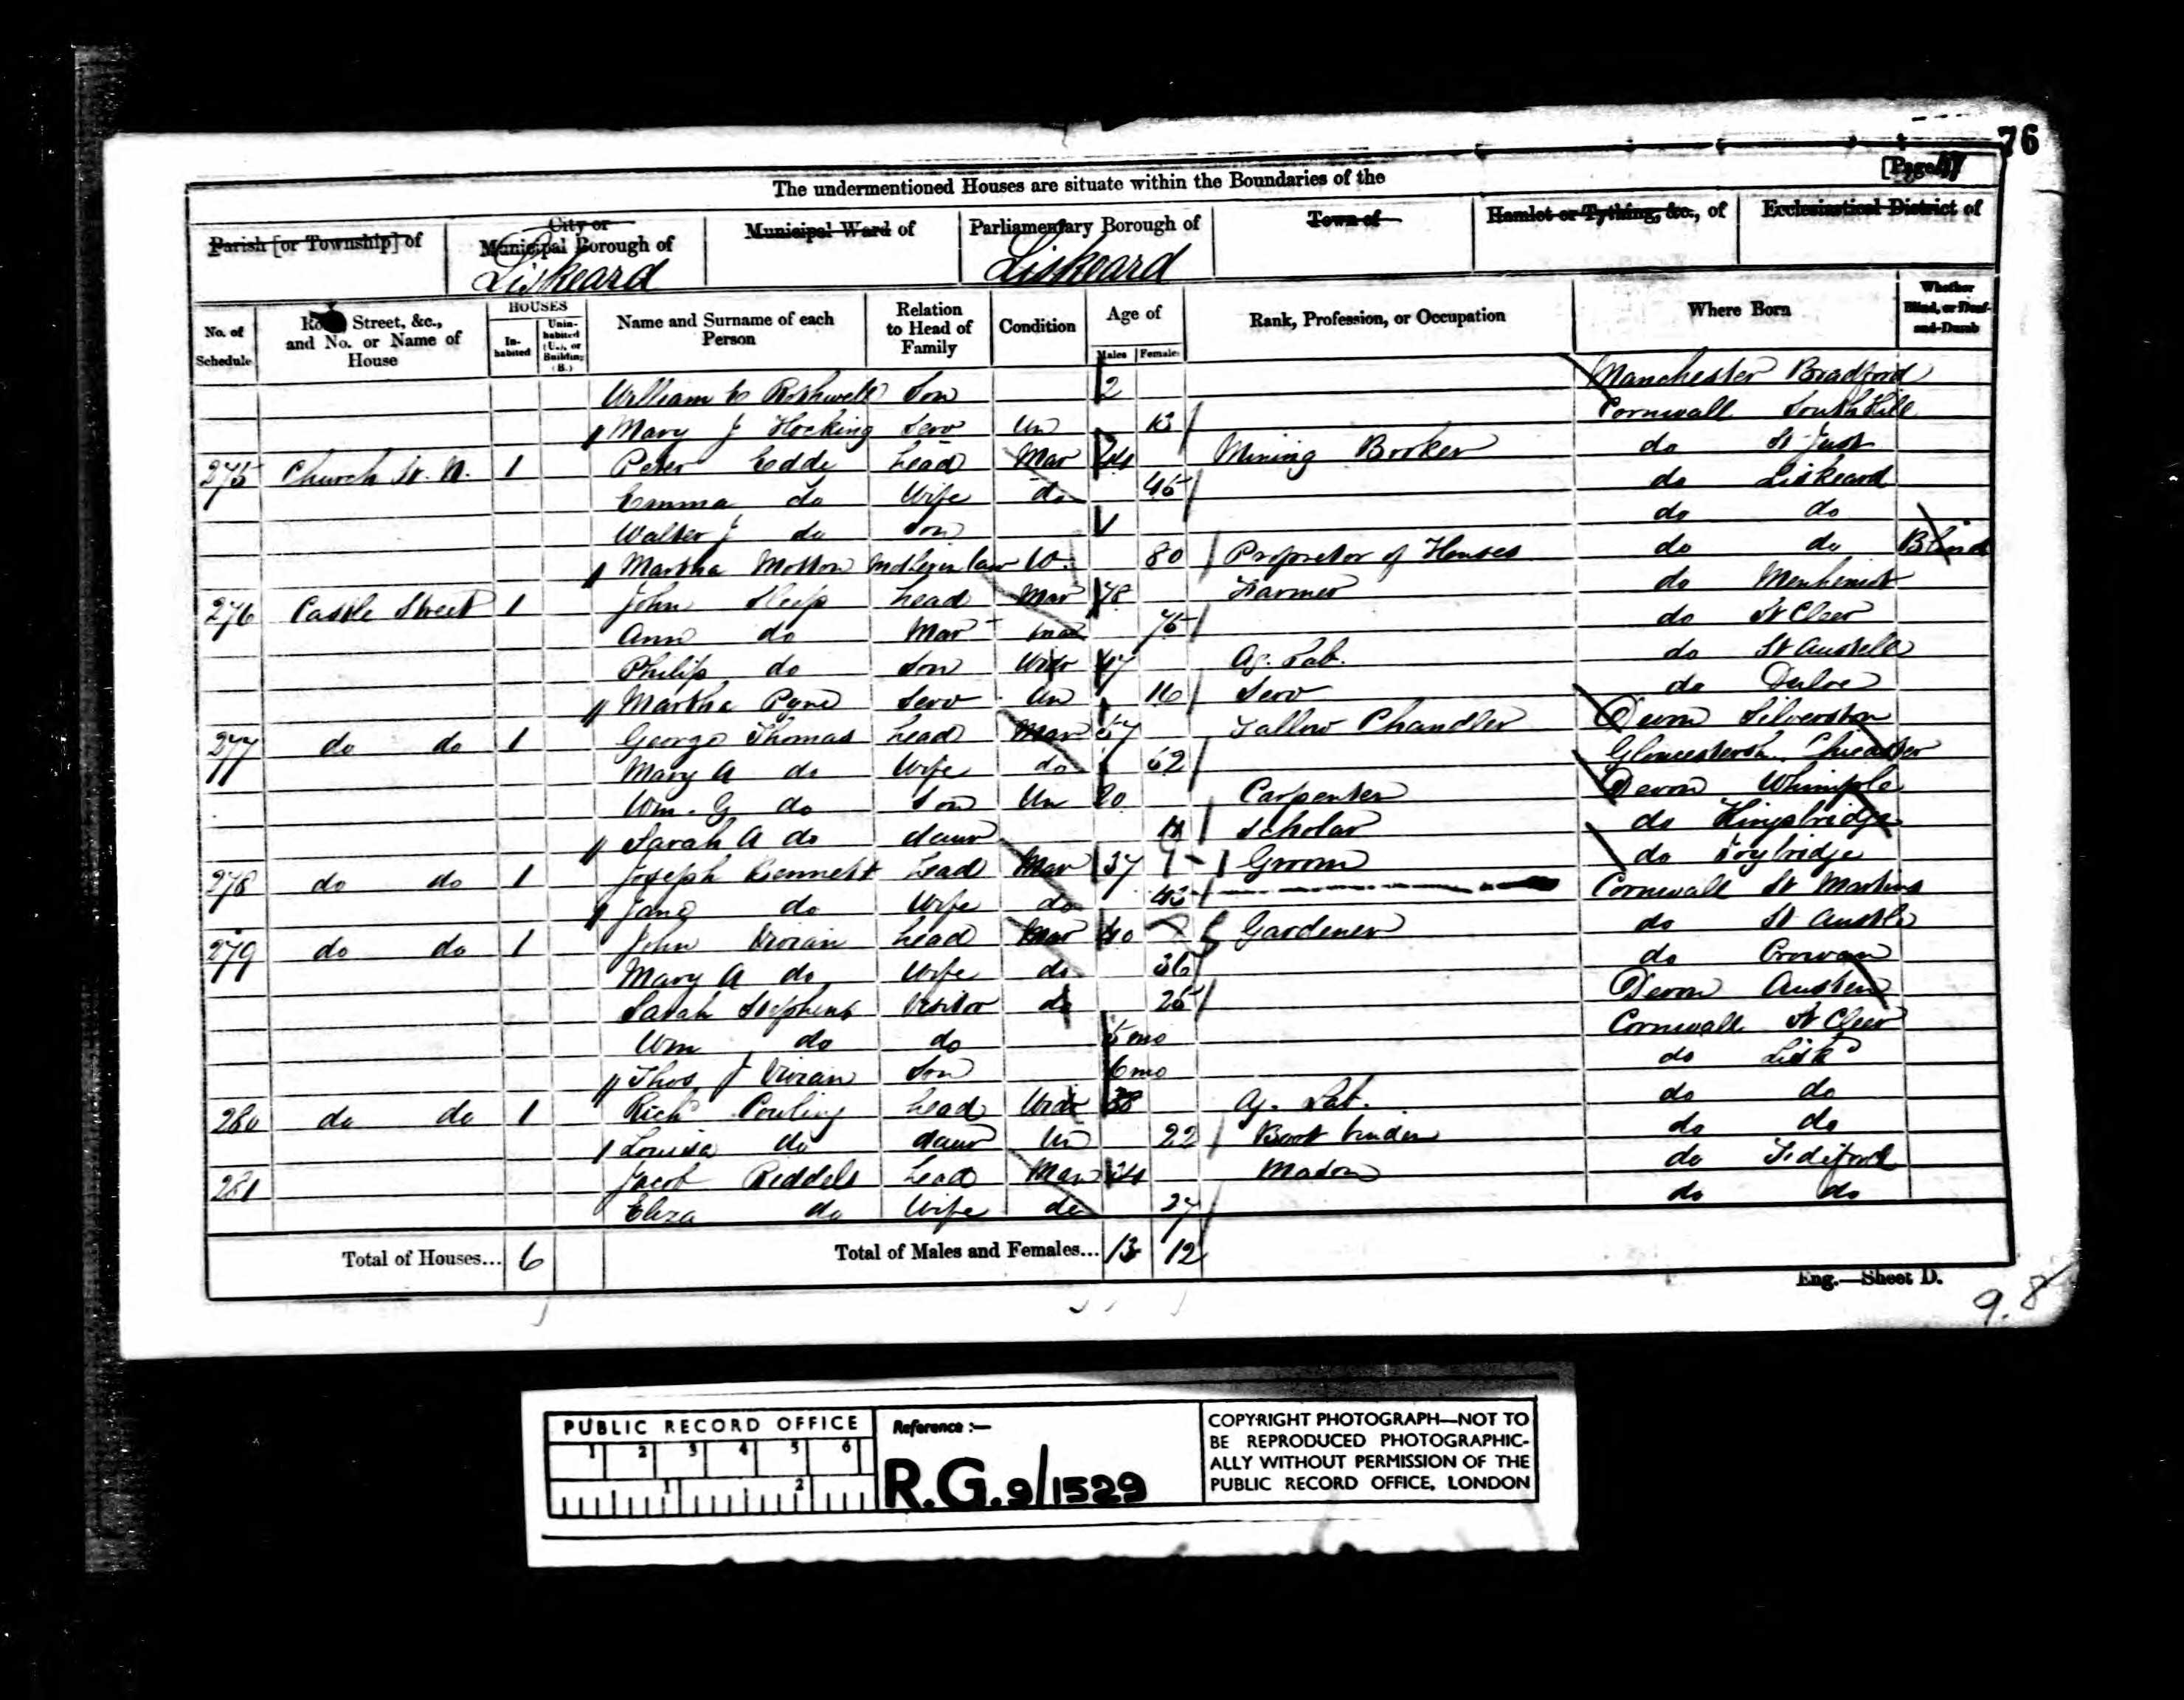 76
[Page 47
The undermentioned Houses are situate within the Boundaries of the
Parish [or Township] of
City or Municipal Borough of
Liskeard
Municipal Ward of
Parliamentary Borough of
Liskeard
Town of
Hamlet or Tything, &c., of
Ecclesiastical District of
No. of Schedule
Street, &c., and No. or Name of House
HOUSES
In-habited
Unin-habited (U.), or Building (B.)
Name and Surname of each Person
Relation to Head of Family
Condition
Age of
Males
Females
Rank, Profession, or Occupation
Where Born
Whether Blind, or Deaf-and-Dumb
William Rothwell Son 2 Manchester Bradford
Mary J Hocking Serv Un 13 Cornwall South Hill
275 Church St. N. 1 Peter Eddy Head Mar 44 Mining Broker do St Just
Emma do Wife do 45 do Liskeard
Walter J do Son 1 do do
Martha Motton Motherinlaw W. 80 Propretor of Houses do do Blind
276 Castle Street 1 John Sleep Head Mar 78 Farmer do Menheniot
Ann do Mar Mar 75 do St Cleer
Philip do Son Widr 47 Ag. Lab. do St Austell
Martha Pyne Serv Un 16 Serv do Duloe
277 do do 1 George Thomas Head Mar 57 Tallow Chandler Devon Silverston
Mary A do Wife do 52 Gloucestersh.
Wm. G do Son Un 20 Carpenter Devon Whimple
Sarah A do daur Scholar do Kingsbridge
278 do do 1 Joseph Bennett Head Mar 37 Groom do Ivybridge
Jane do Wife do 43 Cornwall St Martins
279 do do 1 John Vivian Head Mar 40 Gardener do St Austle
Mary A do Wife do 36 do Crowan
Sarah Stephens Visitor do 25 Devon
Wm do do 5 mo Cornwall St Cleer
Thos J Vivian Son 6 mo do Liskd
280 do do 1 Richd Couling Head Widr Ag. Lab. do do
Louisa do daur Un 22 Boot binder do do
281 Jacob Reddels Head Mar 34 Mason do
Eliza do Wife do 27 do do
Total of Houses... 6
Total of Males and Females... 13 12
Eng.—Sheet D.
9.8
PUBLIC RECORD OFFICE
1 2 3 4 5 6
1 2
Reference :—
R.G. 9/1529
COPYRIGHT PHOTOGRAPH—NOT TO
BE REPRODUCED PHOTOGRAPHIC-
ALLY WITHOUT PERMISSION OF THE
PUBLIC RECORD OFFICE, LONDON